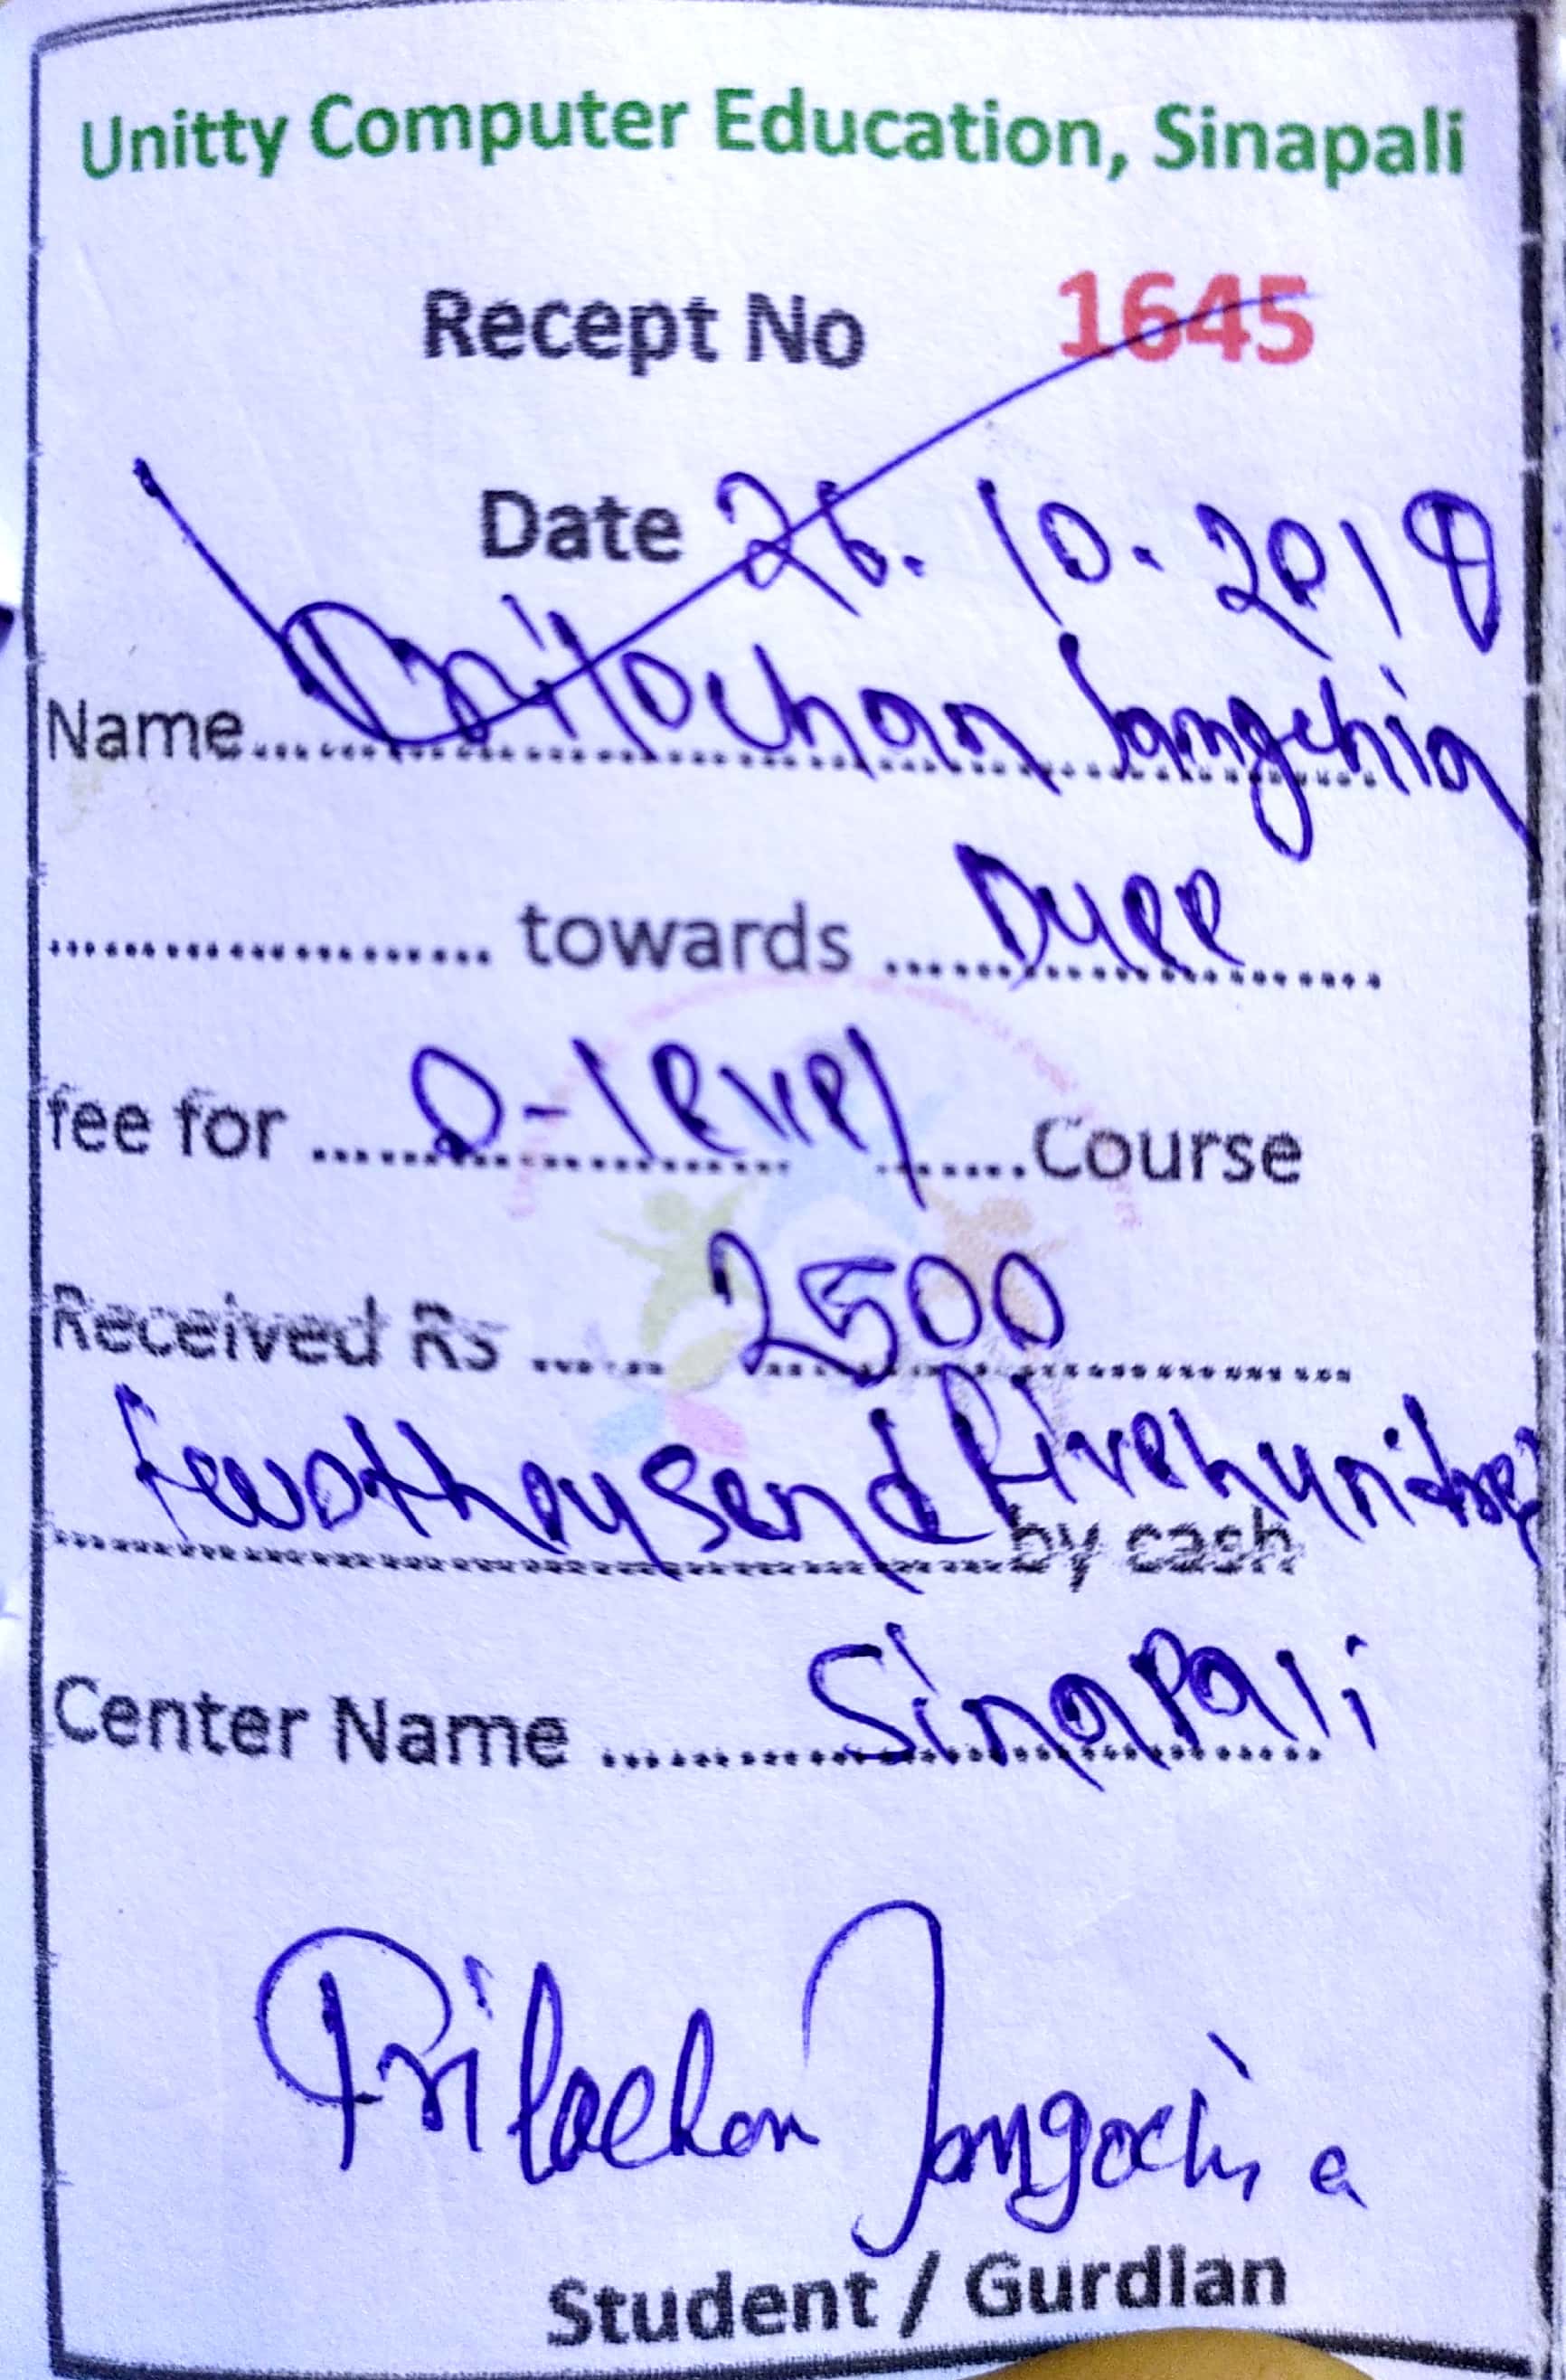 Unitty Computer Education, Sinapali
Recept No 1645
Date 26.10.2019
Name Trilochan Jangchia
towards Duee
fee for O-level Course
Received Rs 2500
Twothousend Fivehundred
by cash
Center Name Sinapali
Trilochan Jangachia
Student / Gurdian